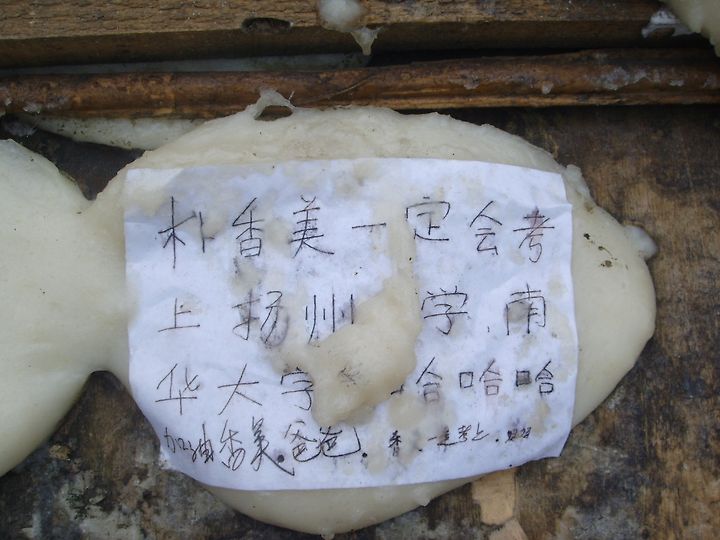 朴香美一定会考
上扬州 学、南
华大学 哈哈哈
加油香美。爸爸。香、一定考上。